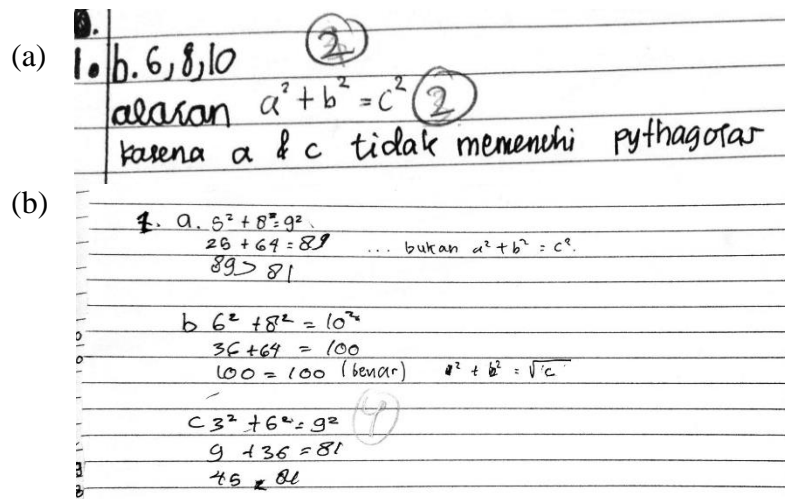 (a)
1. b. 6, 8, 10 (2)
alasan a² + b² = c² (2)
karena a & c tidak memenuhi pythagoras
(b)
1. a. 5² + 8² = 9²
25 + 64 = 89 ... bukan a² + b² = c².
89 > 81
b 6² + 8² = 10²
36 + 64 = 100
100 = 100 (benar) a² + b² = √c
c 3² + 6² = 9²
9 + 36 = 81
45 81